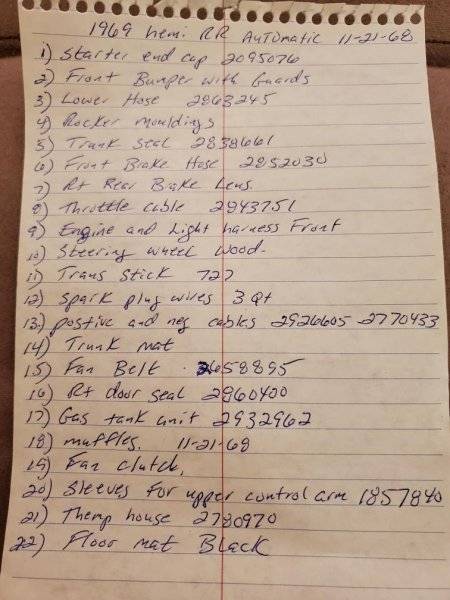 1969 Hemi RR Automatic 11-21-68
1) Starter end cap 2095076
2) Front Bumper with Guards
3) Lower Hose 2863245
4) Rocker mouldings
5) Trunk seal 2838661
6) Front Brake Hose 2852030
7) Rt Rear Brake Lens.
8) Throttle cable 2843751
9) Engine and Light harness Front
10) Steering wheel wood-
11) Trans Stick 727
12) Spark plug wires 3 Qt
13.) postive and neg cables 2926605-2770433
14) Trunk mat
15) Fan Belt 2658895
16) Rt door seal 2960400
17) Gas tank unit 2932962
18) muffles. 11-21-68
19) Fan clutch.
20) Sleeves for upper control arm 1857840
21) Themp house 2780970
22) Floor mat Black